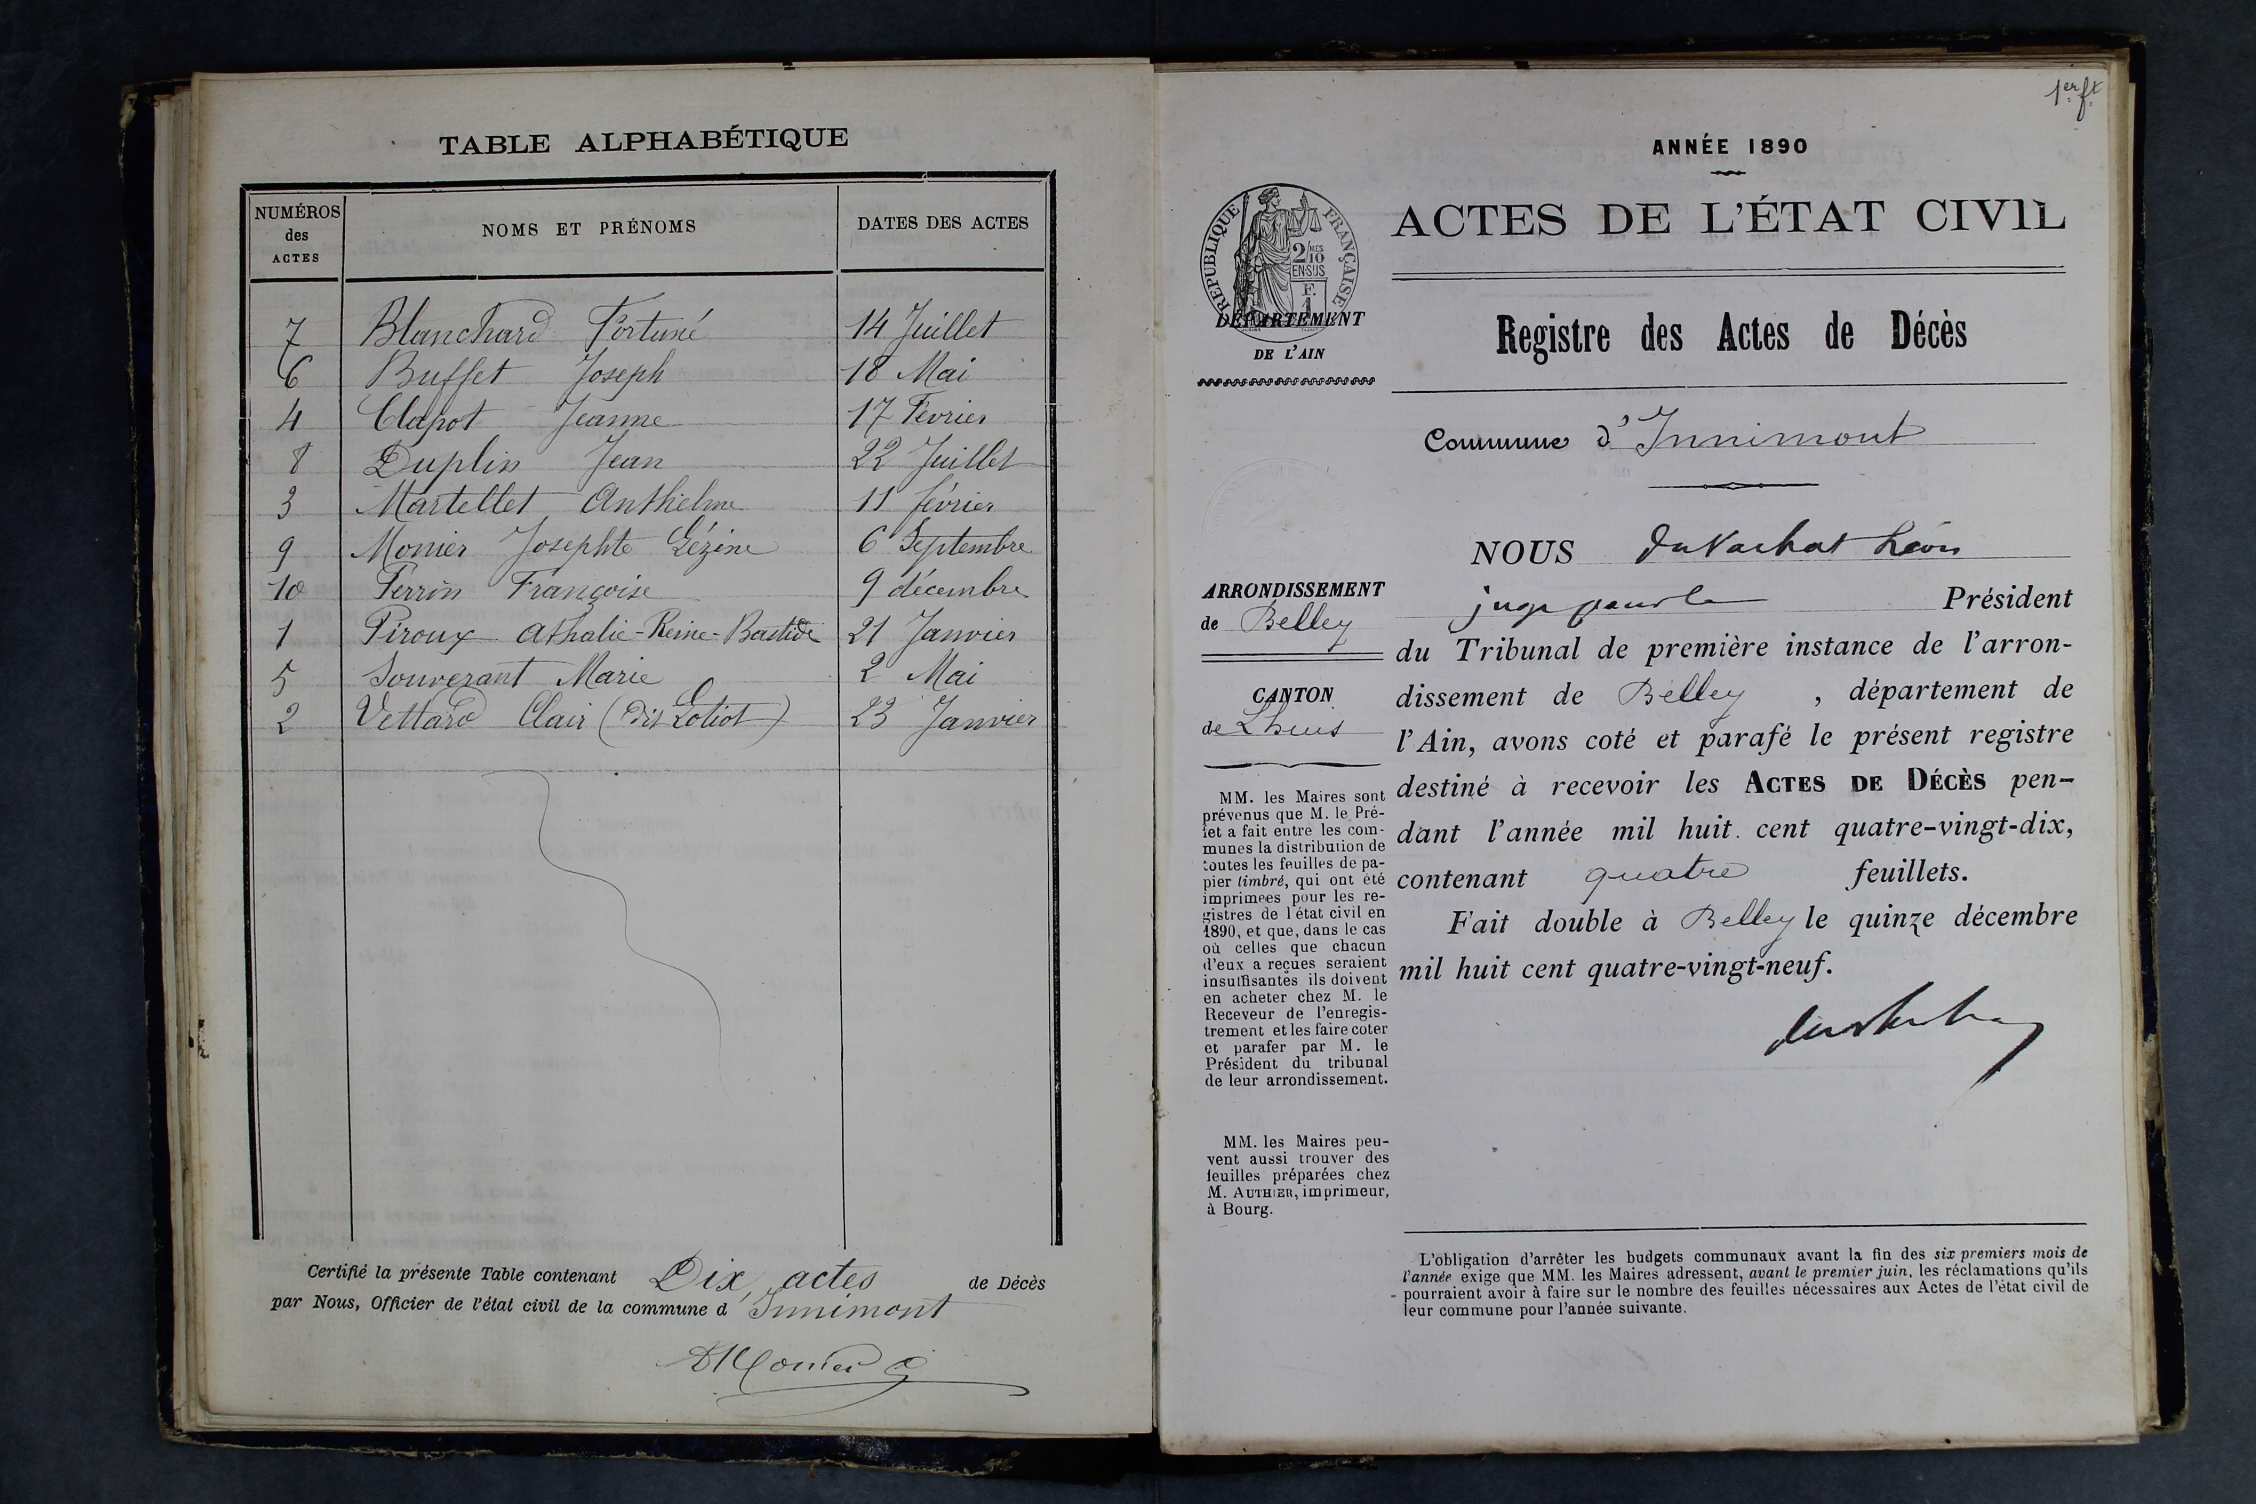 TABLE ALPHABÉTIQUE
NUMÉROS des ACTES
NOMS ET PRÉNOMS
DATES DES ACTES
7 Blanchard Fortuné 14 Juillet
6 Buffet Joseph 18 Mai
4 Clapot Jeanne 17 Février
8 Duplin Jean 22 Juillet
3 Martellet Anthelme 11 février
9 Monier Josephte Lézine 6 Septembre
10 Perrin Françoise 9 décembre
1 Piroux Athalie-Reine-Bastide 21 Janvier
5 Souverant Marie 2 Mai
2 Vettard Clair (dit Lotiot) 23 Janvier
Certifié la présente Table contenant Dix actes de Décès
par Nous, Officier de l'état civil de la commune d'Innimont
Monier
1er ft
ANNÉE 1890
RÉPUBLIQUE FRANÇAISE
2/10 MES
EN SUS
F.
1
DÉPARTEMENT
DE L'AIN
ACTES DE L'ÉTAT CIVIL
Registre des Actes de Décès
Commune d'Innimont
ARRONDISSEMENT
de Belley
CANTON
de Lhuis
MM. les Maires sont
prévenus que M. le Pré-
fet a fait entre les com-
munes la distribution de
toutes les feuilles de pa-
pier timbré, qui ont été
imprimées pour les re-
gistres de l'état civil en
1890, et que, dans le cas
où celles que chacun
d'eux a reçues seraient
insuffisantes ils doivent
en acheter chez M. le
Receveur de l'enregis-
trement et les faire coter
et parafer par M. le
Président du tribunal
de leur arrondissement.
MM. les Maires peu-
vent aussi trouver des
feuilles préparées chez
M. AUTHIER, imprimeur,
à Bourg.
NOUS du Vachat Léon
juge pour le Président
du Tribunal de première instance de l'arron-
dissement de Belley, département de
l'Ain, avons coté et parafé le présent registre
destiné à recevoir les ACTES DE DÉCÈS pen-
dant l'année mil huit cent quatre-vingt-dix,
contenant quatre feuillets.
Fait double à Belley le quinze décembre
mil huit cent quatre-vingt-neuf.
L'obligation d'arrêter les budgets communaux avant la fin des six premiers mois de
l'année exige que MM. les Maires adressent, avant le premier juin, les réclamations qu'ils
pourraient avoir à faire sur le nombre des feuilles nécessaires aux Actes de l'état civil de
leur commune pour l'année suivante.